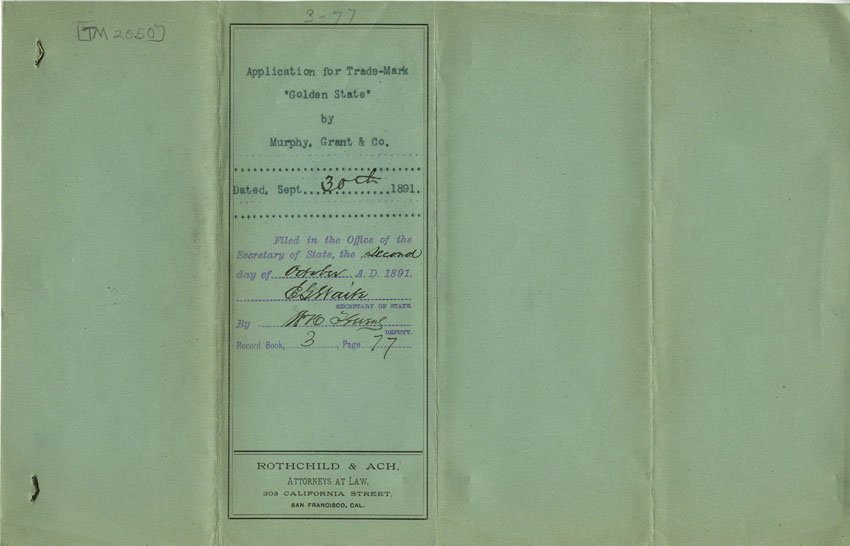 3-77
[TM 2050]
Application for Trade-Mark
"Golden State"
by
Murphy, Grant & Co.
Dated, Sept....30th....1891.
Filed in the Office of the
Secretary of State, the second
day of October A.D. 1891.
E G Waite
SECRETARY OF STATE
By
DEPUTY.
Record Book, 3, Page 77
ROTHCHILD & ACH,
ATTORNEYS AT LAW,
303 CALIFORNIA STREET,
SAN FRANCISCO, CAL.